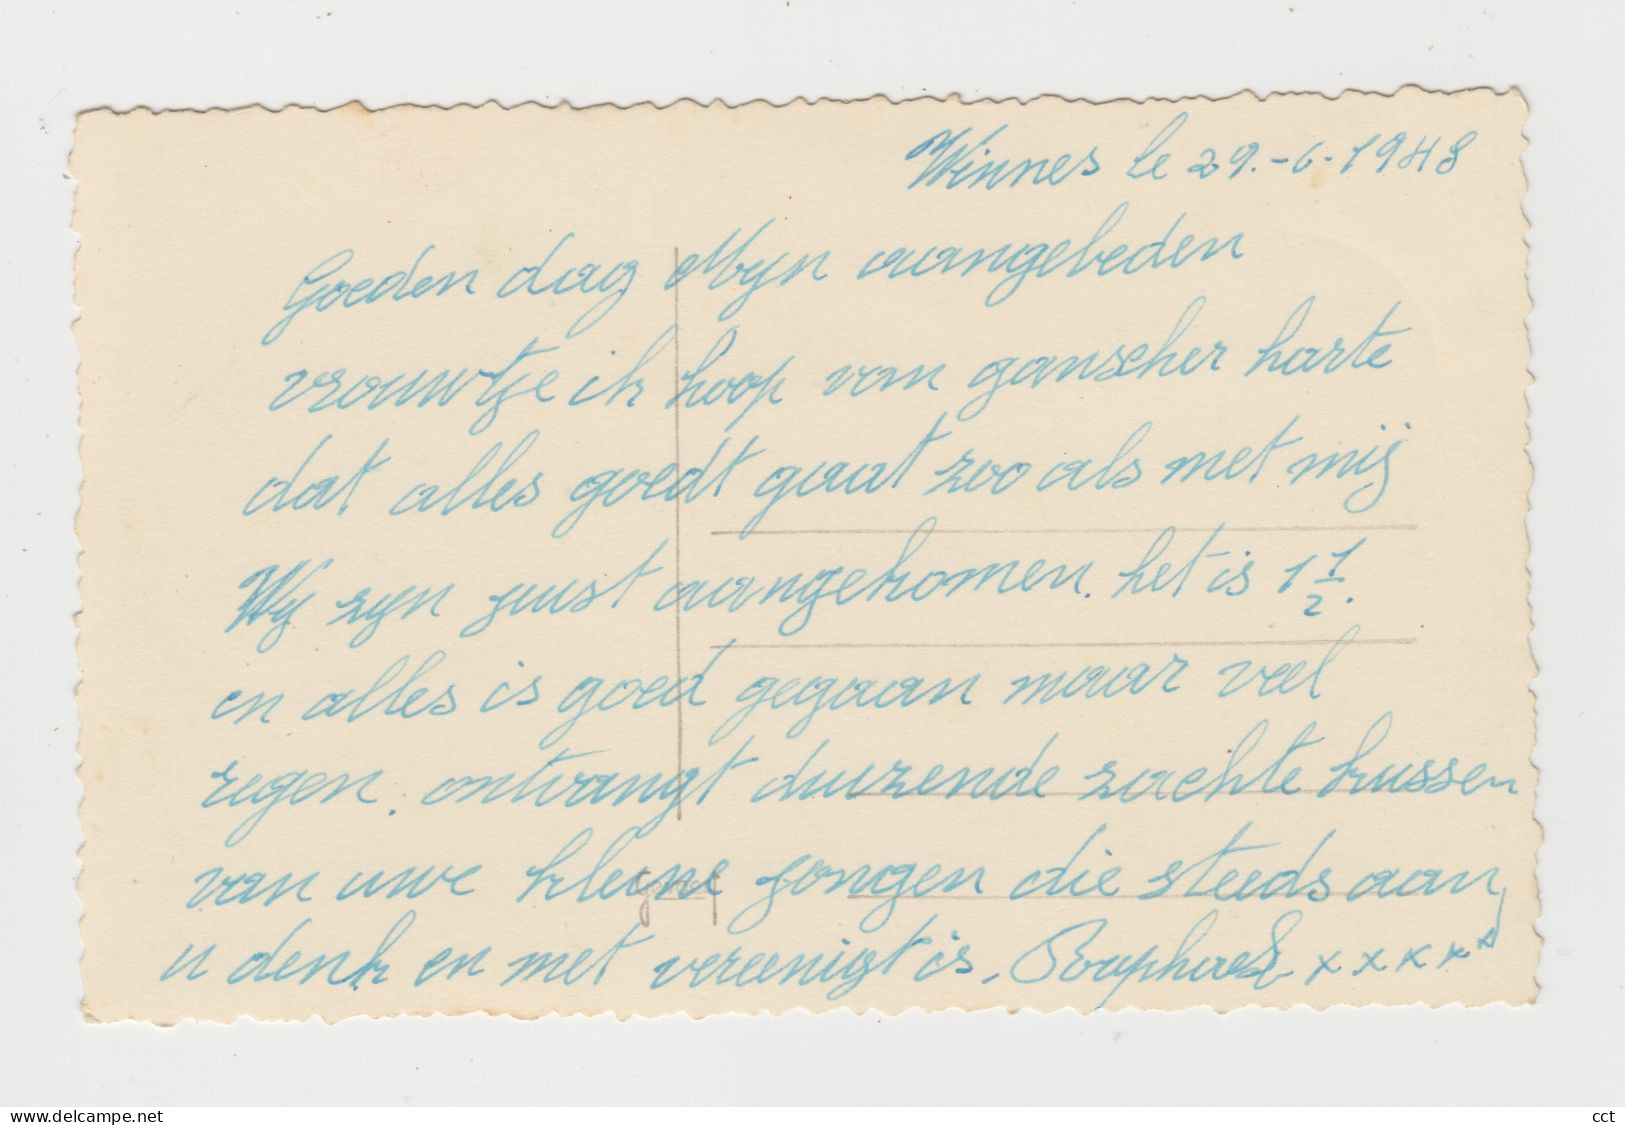 Winnes le 29.-6-1948
Goeden dag Mijn aangebeden
vrouwtje ik hoop van ganscher harte
dat alles goedt gaat zoo als met mij
Wij zijn juist aangekomen. het is 1 1/2.
en alles is goed gegaan maar veel
regen. ontvangt duizende zachte kussen
van uwe kleine jongen die steeds aan
u denk en met vereenigt is. Raphaël x x x x x
www.delcampe.net
cct